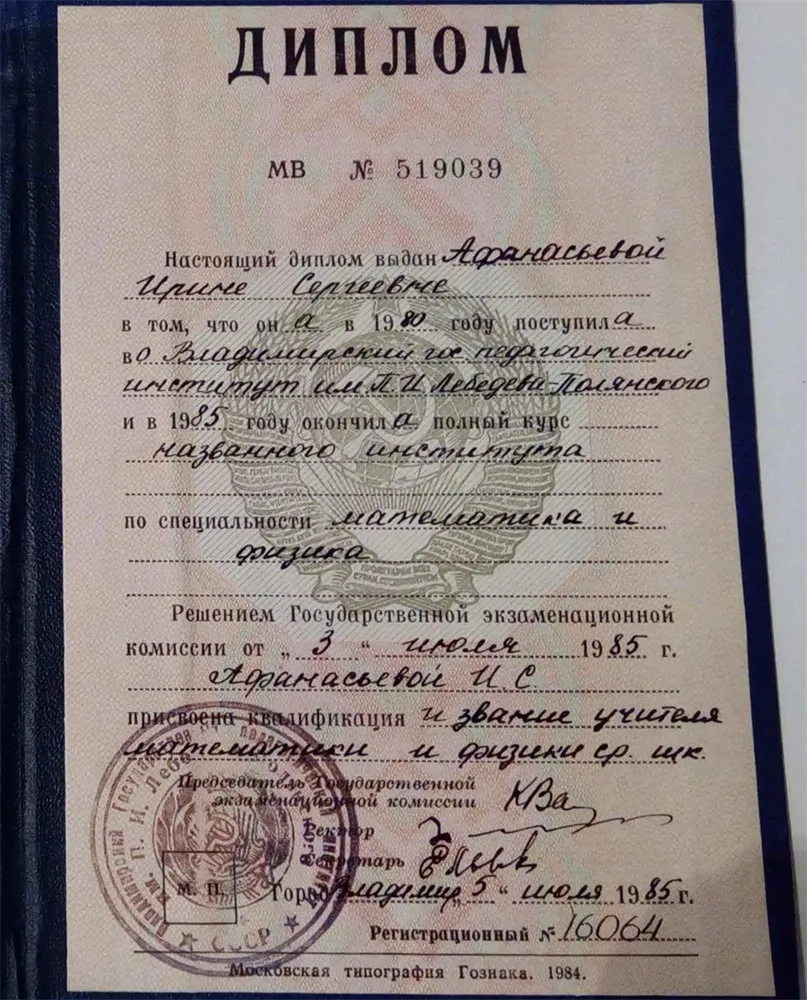 ДИПЛОМ
МВ № 519039
Настоящий диплом выдан Афанасьевой
Ирине Сергеевне
в том, что он а в 1980 году поступил а
во Владимирский гос педагогический
институт им П И Лебедева-Полянского
и в 1985 году окончил а полный курс
названного института
по специальности математика и
физика
Решением Государственной экзаменационной
комиссии от „ 3 “ июля 1985 г.
Афанасьевой И. С.
присвоена квалификация и звание учителя
математики и физики ср. шк.
Председатель Государственной
экзаменационной комиссии
Ректор
Секретарь
М. П.
Город Владимир „ 5 “ июля 1985 г.
Регистрационный № 16064
СССР
Московская типография Гознака. 1984.